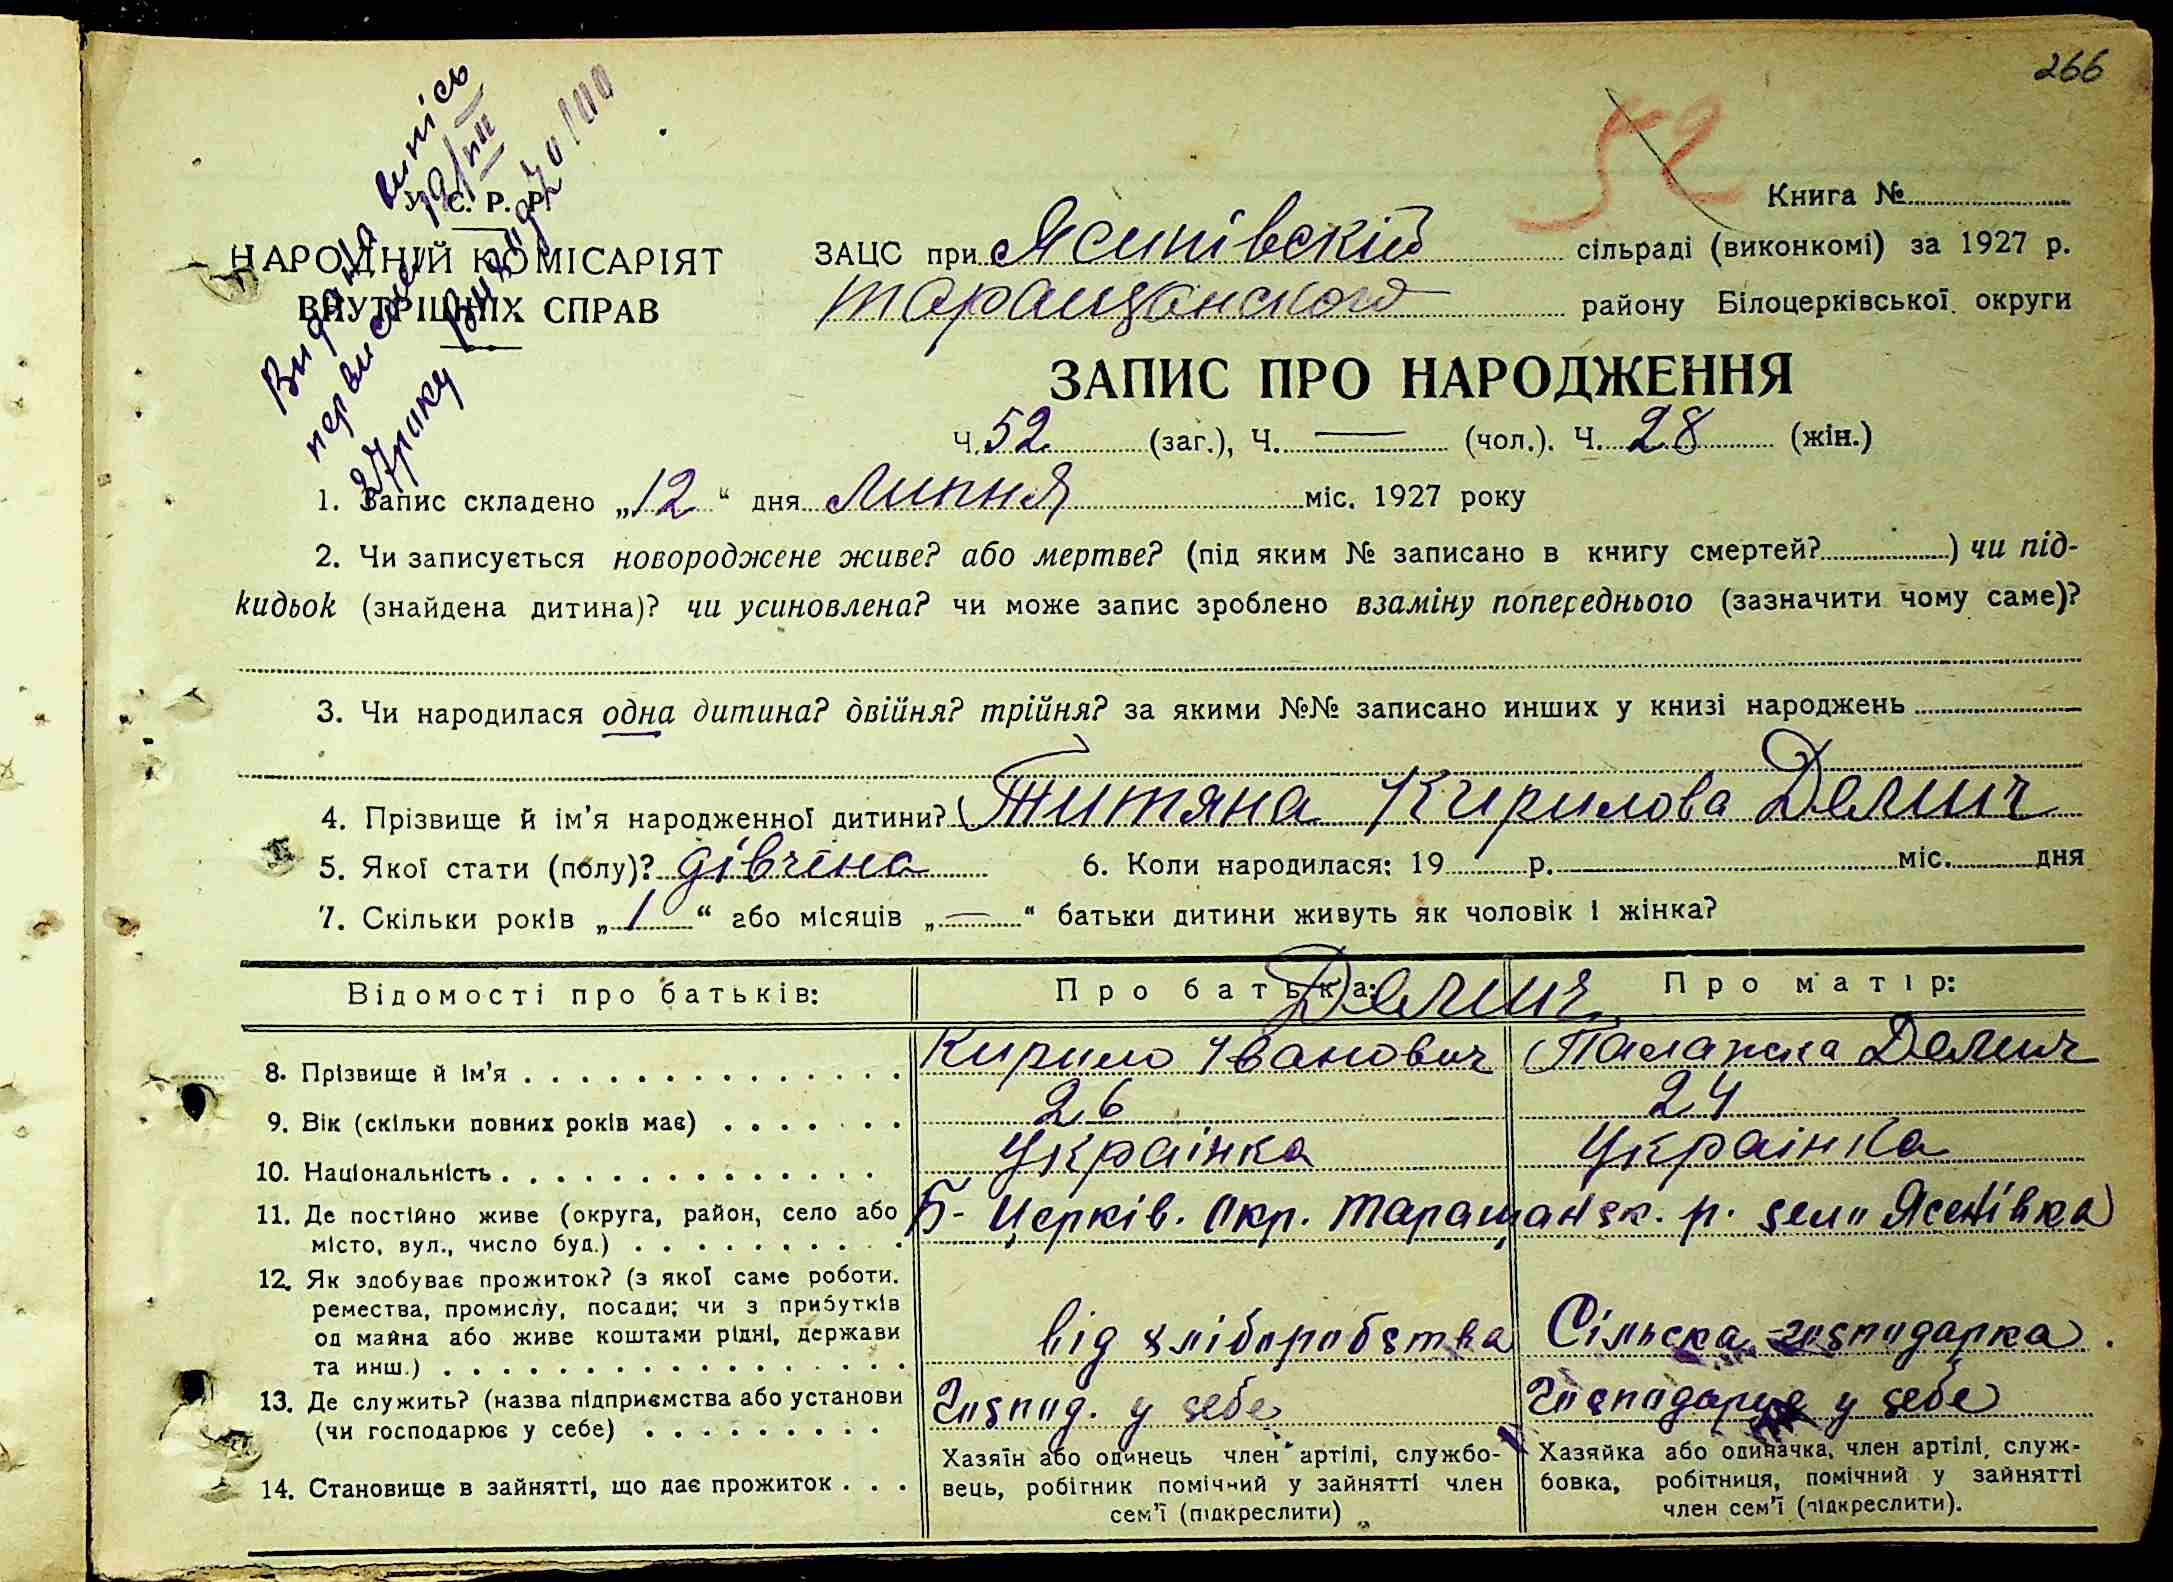 266
52
Видана випісь
первисна 19/VIII
27 року
У. С. Р. Р.
НАРОДНІЙ КОМІСАРІЯТ
ВНУТРІШНІХ СПРАВ
Книга №
ЗАЦС при Ясинівскій сільраді (виконкомі) за 1927 р.
Таращанского району Білоцерківської округи
ЗАПИС ПРО НАРОДЖЕННЯ
Ч. 52 (заг.), Ч. — (чол.). Ч. 28 (жін.)
1. Запис складено „12“ дня Липня міс. 1927 року
2. Чи записується новороджене живе? або мертве? (під яким № записано в книгу смертей?) чи під-
кидьок (знайдена дитина)? чи усиновлена? чи може запис зроблено взаміну попереднього (зазначити чому саме)?
3. Чи народилася одна дитина? двійня? трійня? за якими №№ записано инших у книзі народжень
4. Прізвище й ім'я народженної дитини? Титяна Кирилова Демич
5. Якої стати (полу)? дівчена 6. Коли народилася: 19 р. міс. дня
7. Скільки років „1“ або місяців „—“ батьки дитини живуть як чоловік і жінка?
Відомості про батьків: Про батька: Про матір:
Демич
8. Прізвище й ім'я Кирило Іванович Палажка Демич
9. Вік (скільки повних років має) 26 24
10. Національність Українка Українка
11. Де постійно живе (округа, район, село або Б-Церків. Окр. Таращанск. р. село Ясенівка
місто, вул., число буд.)
12. Як здобуває прожиток? (з якої саме роботи.
ремества, промислу, посади; чи з прибутків
од майна або живе коштами рідні, держави від хліборобства Сільска господарка
та инш.)
13. Де служить? (назва підприємства або установи Господ. у себе Господарює у себе
(чи господарює у себе)
14. Становище в зайнятті, що дає прожиток
Хазяїн або одинець член артілі, службо-
вець, робітник помічний у зайнятті член
сем'ї (підкреслити)
Хазяйка або одиначка, член артілі, служ-
бовка, робітниця, помічний у зайнятті
член сем'ї (підкреслити).